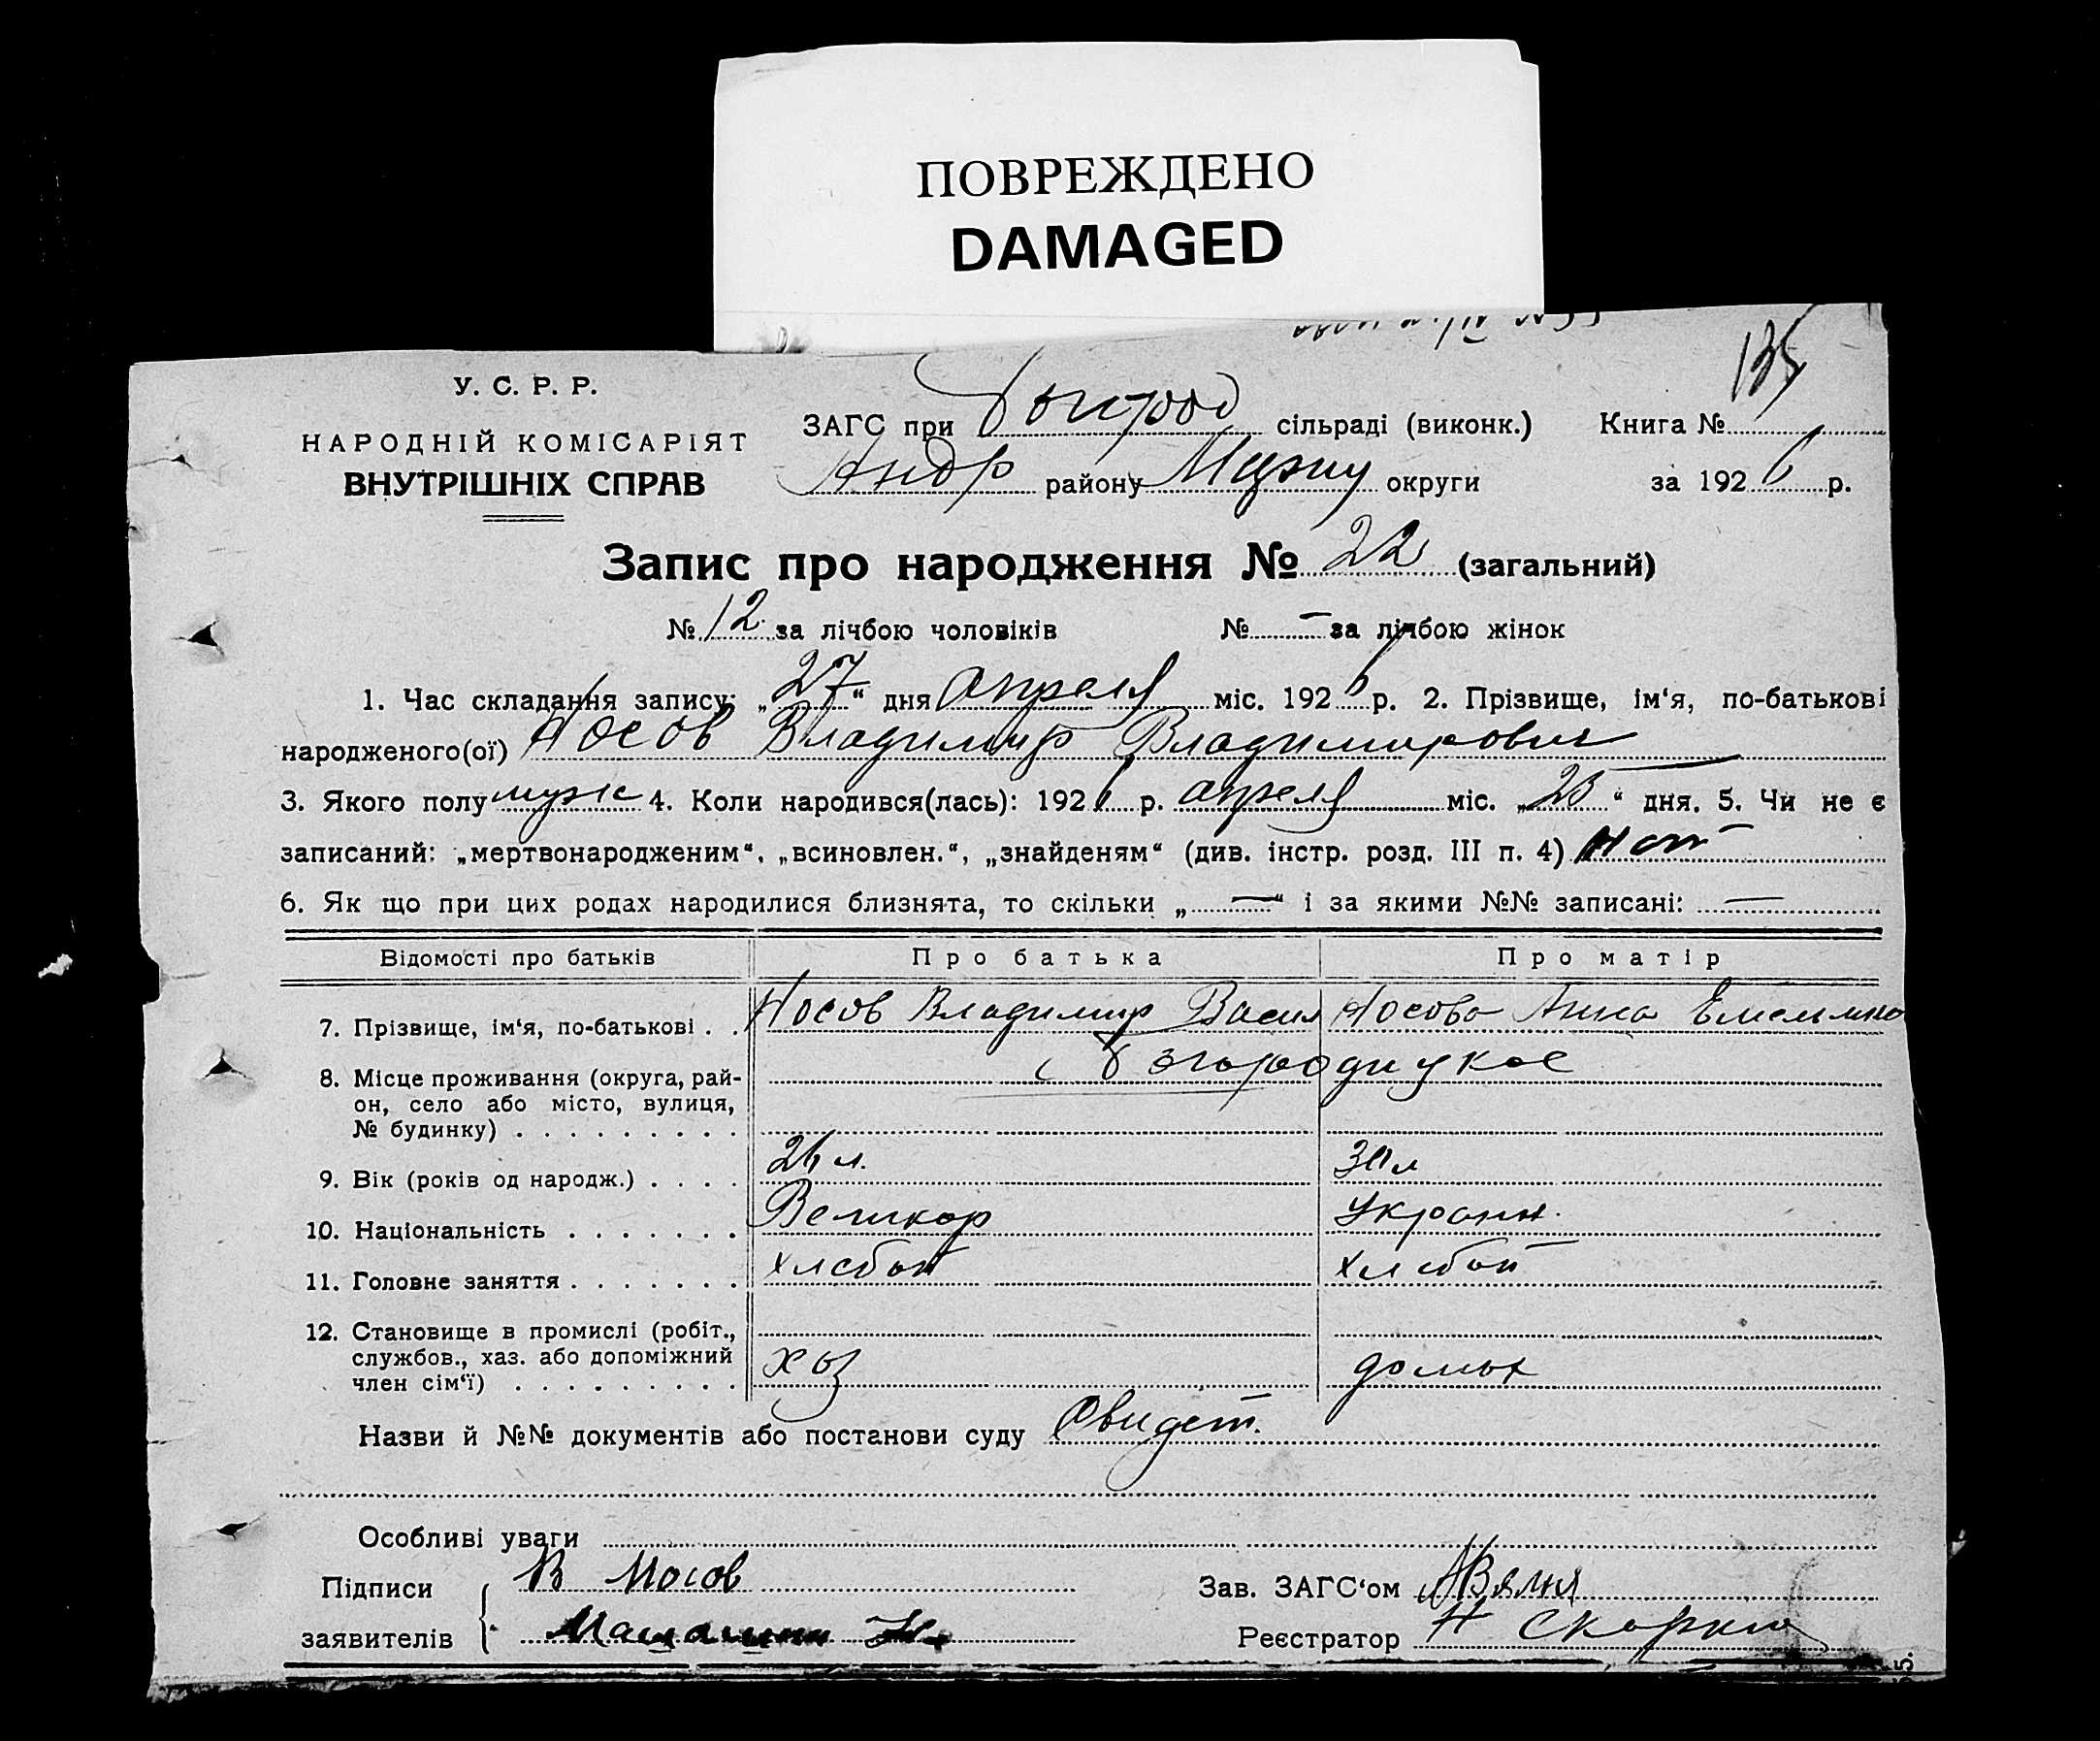 ПОВРЕЖДЕНО
DAMAGED
135
У. С. Р. Р.
НАРОДНІЙ КОМІСАРІЯТ
ВНУТРІШНІХ СПРАВ
ЗАГС при Богород сільраді (виконк.) Книга №
Андр району округи за 1926 р.
Запис про народження № 22 (загальний)
№ 12 за лічбою чоловіків № — за лічбою жінок
1. Час складання запису: „27“ дня апреля міс. 1926 р. 2. Прізвище, ім‘я, по-батькові
народженого(ої) Носов Владимир Владимирович
3. Якого полу муж 4. Коли народився(лась): 1926 р. апреля міс. „25“ дня. 5. Чи не є
записаний: „мертвонародженим“, „всиновлен.“, „знайденям“ (див. інстр. розд. III п. 4) нет
6. Як що при цих родах народилися близнята, то скільки „—“ і за якими №№ записані: —
Відомості про батьків Про батька Про матір
7. Прізвище, ім‘я, по-батькові . . Носов Владимир Васил Носова Анна Емельяно
8. Місце проживання (округа, рай- с Богородицкое
он, село або місто, вулиця,
№ будинку) . . . . . . . . .
9. Вік (років од народж.) . . . . 26 л. 30 л
10. Національність . . . . . . . Великор Украин.
11. Головне заняття . . . . . . . хлебоп хлебоп
12. Становище в промислі (робіт.,
службов., хаз. або допоміжний
член сім‘ї) . . . . . . . . . хоз домох
Назви й №№ документів або постанови суду Свидет.
Особливі уваги
Підписи В Носов Зав. ЗАГС‘ом
заявителів Реєстратор
5.